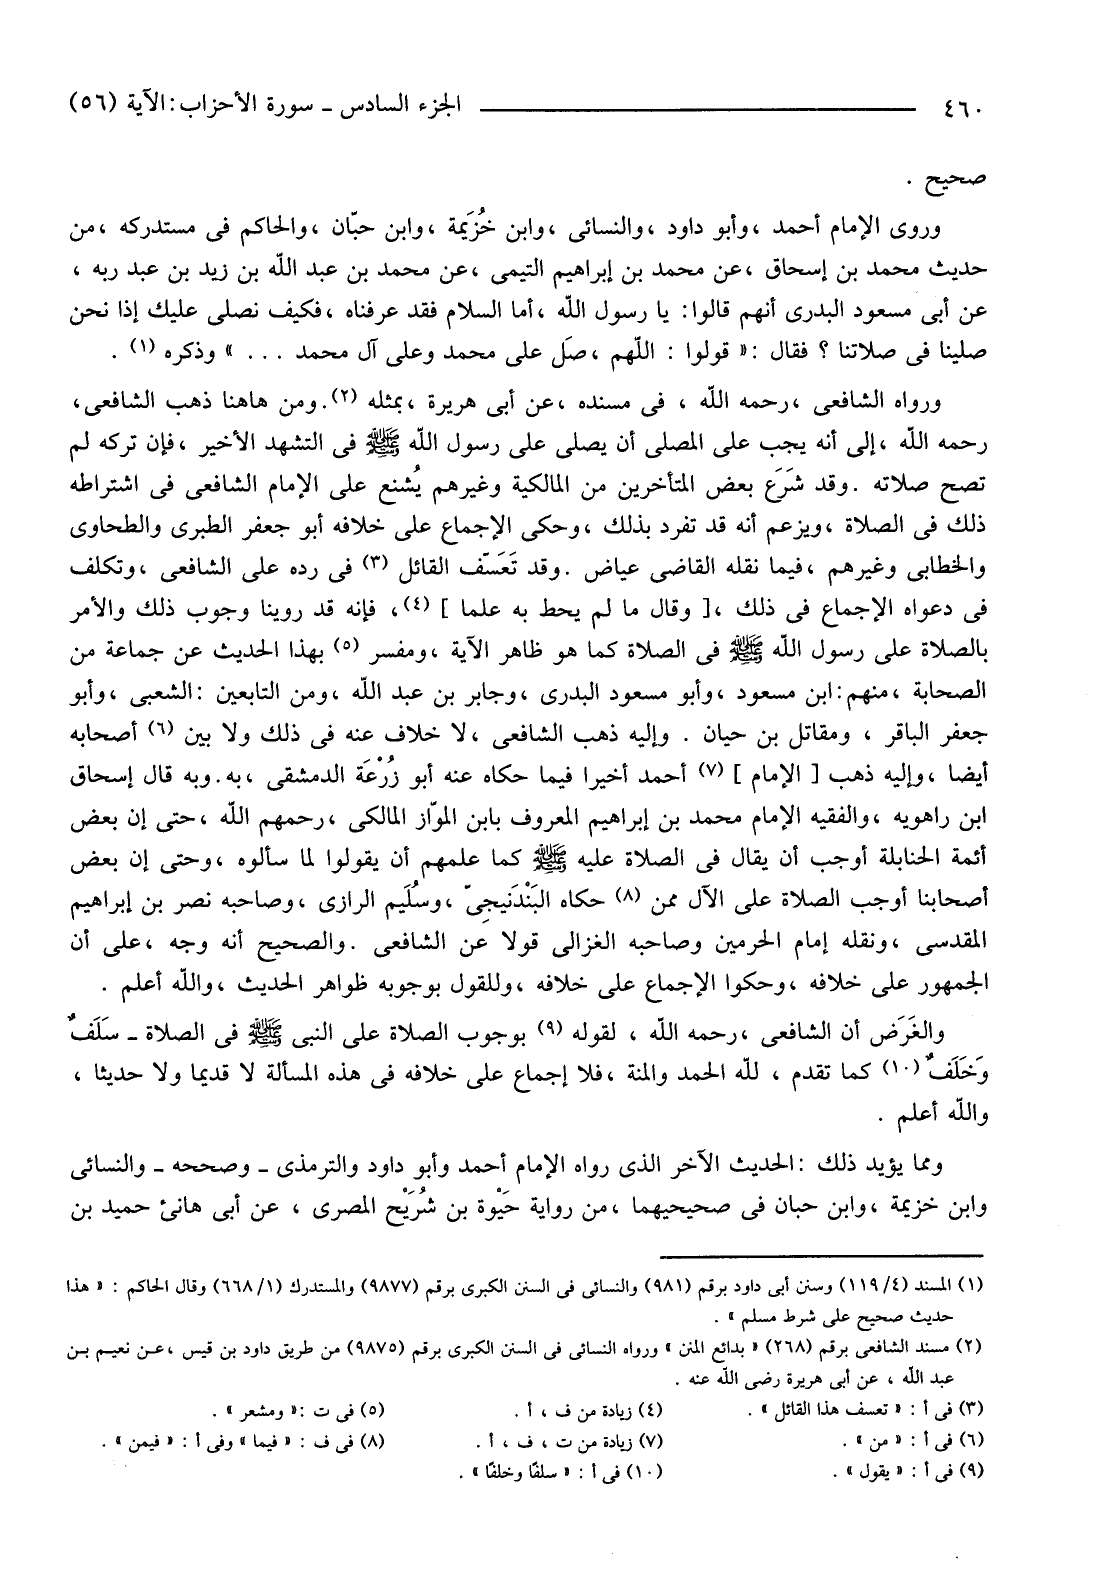 ٤٦٠ ــــــــــــــــــــــــــــ الجزء السادس ـ سورة الأحزاب: الآية (٥٦)
صحيح .
وروى الإمام أحمد ، وأبو داود ، والنسائى ، وابن خُزَيمة ، وابن حبّان ، والحاكم فى مستدركه ، من
حديث محمد بن إسحاق ، عن محمد بن إبراهيم التيمى ، عن محمد بن عبد الله بن زيد بن عبد ربه ،
عن أبى مسعود البدرى أنهم قالوا: يا رسول الله ، أما السلام فقد عرفناه ، فكيف نصلى عليك إذا نحن
صلينا فى صلاتنا ؟ فقال : « قولوا : اللّهم ، صَل على محمد وعلى آل محمد ... » وذكره (١) .
ورواه الشافعى ، رحمه الله ، فى مسنده ، عن أبى هريرة ، بمثله (٢). ومن هاهنا ذهب الشافعى،
رحمه الله ، إلى أنه يجب على المصلى أن يصلى على رسول الله ﷺ فى التشهد الأخير ، فإن تركه لم
تصح صلاته . وقد شَرَعَ بعض المتأخرين من المالكية وغيرهم يُشنع على الإمام الشافعى فى اشتراطه
ذلك فى الصلاة ، ويزعم أنه قد تفرد بذلك ، وحكى الإجماع على خلافه أبو جعفر الطبرى والطحاوى
والخطابى وغيرهم ، فيما نقله القاضى عياض . وقد تَعَسّف القائل (٣) فى رده على الشافعى ، وتكلف
فى دعواه الإجماع فى ذلك ، [ وقال ما لم يحط به علما ] (٤)، فإنه قد روينا وجوب ذلك والأمر
بالصلاة على رسول الله ﷺ فى الصلاة كما هو ظاهر الآية ، ومفسر (٥) بهذا الحديث عن جماعة من
الصحابة ، منهم: ابن مسعود ، وأبو مسعود البدرى ، وجابر بن عبد الله ، ومن التابعين : الشعبى ، وأبو
جعفر الباقر ، ومقاتل بن حيان . وإليه ذهب الشافعى ، لا خلاف عنه فى ذلك ولا بين (٦) أصحابه
أيضا ، وإليه ذهب [ الإمام ] (٧) أحمد أخيرا فيما حكاه عنه أبو زُرْعَة الدمشقى ، به. وبه قال إسحاق
ابن راهويه ، والفقيه الإمام محمد بن إبراهيم المعروف بابن الموّاز المالكى ، رحمهم الله ، حتى إن بعض
أئمة الحنابلة أوجب أن يقال فى الصلاة عليه ﷺ كما علمهم أن يقولوا لما سألوه ، وحتى إن بعض
أصحابنا أوجب الصلاة على الآل ممن (٨) حكاه البَنْدَنيجِىّ ، وسُلَيم الرازى ، وصاحبه نصر بن إبراهيم
المقدسى ، ونقله إمام الحرمين وصاحبه الغزالى قولا عن الشافعى . والصحيح أنه وجه ، على أن
الجمهور على خلافه ، وحكوا الإجماع على خلافه ، وللقول بوجوبه ظواهر الحديث ، والله أعلم .
والغَرَض أن الشافعى ، رحمه الله ، لقوله (٩) بوجوب الصلاة على النبى ﷺ فى الصلاة ـ سَلَفٌ
وَخَلَفٌ (١٠) كما تقدم ، لله الحمد والمنة ، فلا إجماع على خلافه فى هذه المسألة لا قديما ولا حديثا ،
والله أعلم .
ومما يؤيد ذلك : الحديث الآخر الذى رواه الإمام أحمد وأبو داود والترمذى ـ وصححه ـ والنسائى
وابن خزيمة ، وابن حبان فى صحيحيهما ، من رواية حَيْوة بن شُرَيْح المصرى ، عن أبى هانئ حميد بن
(١) المسند (٤/ ١١٩) وسنن أبى داود برقم (٩٨١) والنسائى فى السنن الكبرى برقم (٩٨٧٧) والمستدرك (١/ ٦٦٨) وقال الحاكم : « هذا
حديث صحيح على شرط مسلم » .
(٢) مسند الشافعى برقم (٢٦٨) « بدائع المنن » ورواه النسائى فى السنن الكبرى برقم (٩٨٧٥) من طريق داود بن قيس ، عـن نعيـم بـن
عبد الله ، عن أبى هريرة رضى الله عنه .
(٣) فى أ : « تعسف هذا القائل » . (٤) زيادة من ف ، أ . (٥) فى ت : « ومشعر » .
(٦) فى أ : « من » . (٧) زيادة من ت ، ف ، أ . (٨) فى ف : « فيما » وفى أ : « فيمن » .
(٩) فى أ : « يقول » . (١٠) فى أ : « سلفًا وخلفًا » .